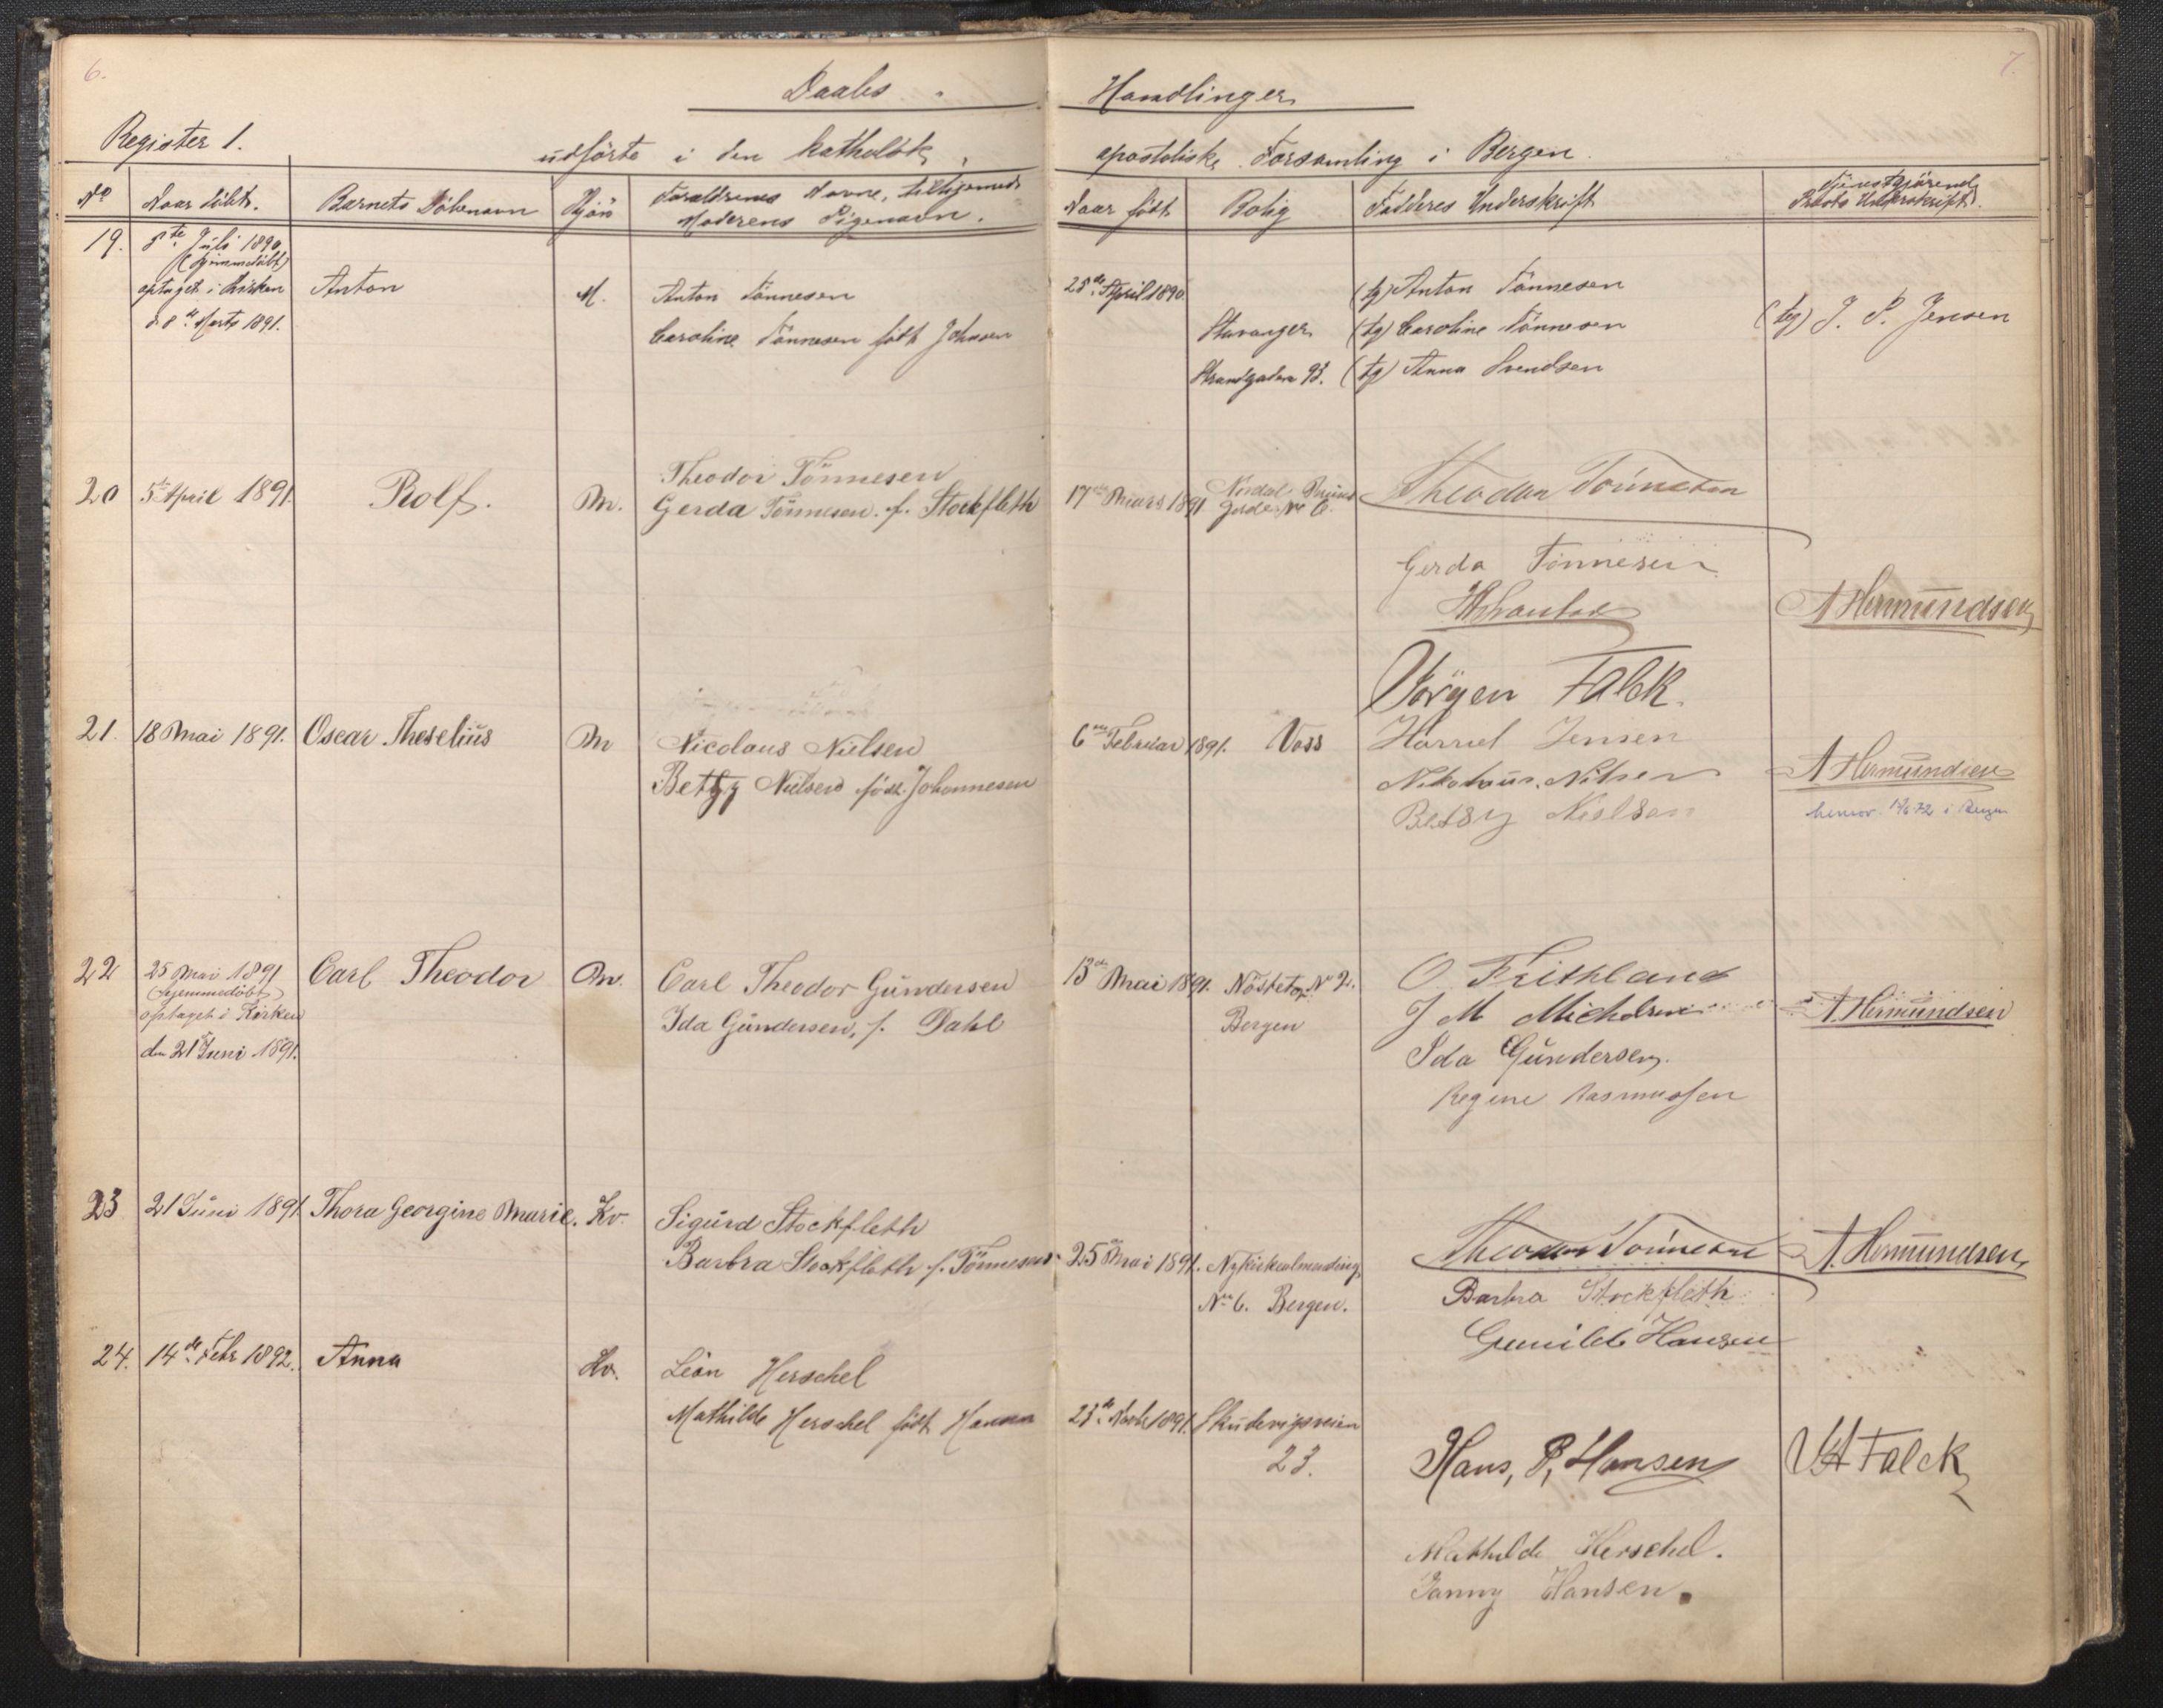 6.
7.
Daabs - Handlinger
Register 1.
udförte i den katholsk apostoliske Forsamling i Bergen.
No Naar döbt. Barnets Döbenavn Kjön Forældrenes Navne, tilligemed Moderens Pigenavn. Naar födt Bolig Fadderes Underskrift Tjenestgjörende Prests Underskrift.
19. 8de Juli 1890 (hjemmedöbt) optaget i Kirken d. 8de Marts 1891.
Anton
M.
Anton Tönnesen
Caroline Tönnesen födt Johnsen
25de April 1890.
Stavanger
Strandgaden 93.
(tg) Anton Tönnesen
(tg) Caroline Tönnesen
(tg) Anna Svendsen
(tg) J. P. Jensen
20 5te April 1891.
Rolf.
M.
Theodor Tönnesen
Gerda Tönnesen. f. Stockfleth
17de Mars 1891
Nordal Bruns Gade No 6.
Theodor Tönnesen
Gerda Tönnesen
Jörgen Falck.
A Hermundsen
21. 18 Mai 1891.
Oscar Theselius
M
Nicolaus Nielsen
Betzy Nielsen födt Johannesen
6te Februar 1891.
Voss
Harriet Jensen
Nikolaus Nilsen
Betsy Nielsen
A Hermundsen
22 25 Mai 1891 (hjemmedöbt) optaget i Kirken den 21 Juni 1891.
Carl Theodor
M.
Carl Theodor Gundersen
Ida Gundersen, f. Dahl
13de Mai 1891.
Nöstetor No 2.
Bergen
O. Frithland
J M Michelsen
Ida Gundersen.
Regine Rasmussen
A. Hermundsen
23 21 Juni 1891.
Thora Georgine Marie.
Kv.
Sigurd Stockfleth
Barbra Stockfleth f. Tönnesen
25de Mai 1891.
Nykirkealmending
No 6. Bergen.
Theodor Tönnesen
Barbra Stockfleth
Gunilde Hansen
A. Hermundsen,
24. 14de Febr 1892.
Anna
Kv.
Léon Herschel
Mathilde Herschel födt Hansen
23de Novbr 1891.
Skudevigsveien
23.
Hans, P, Hansen
Mathilde Herschel.
Janny Hansen.
Falck